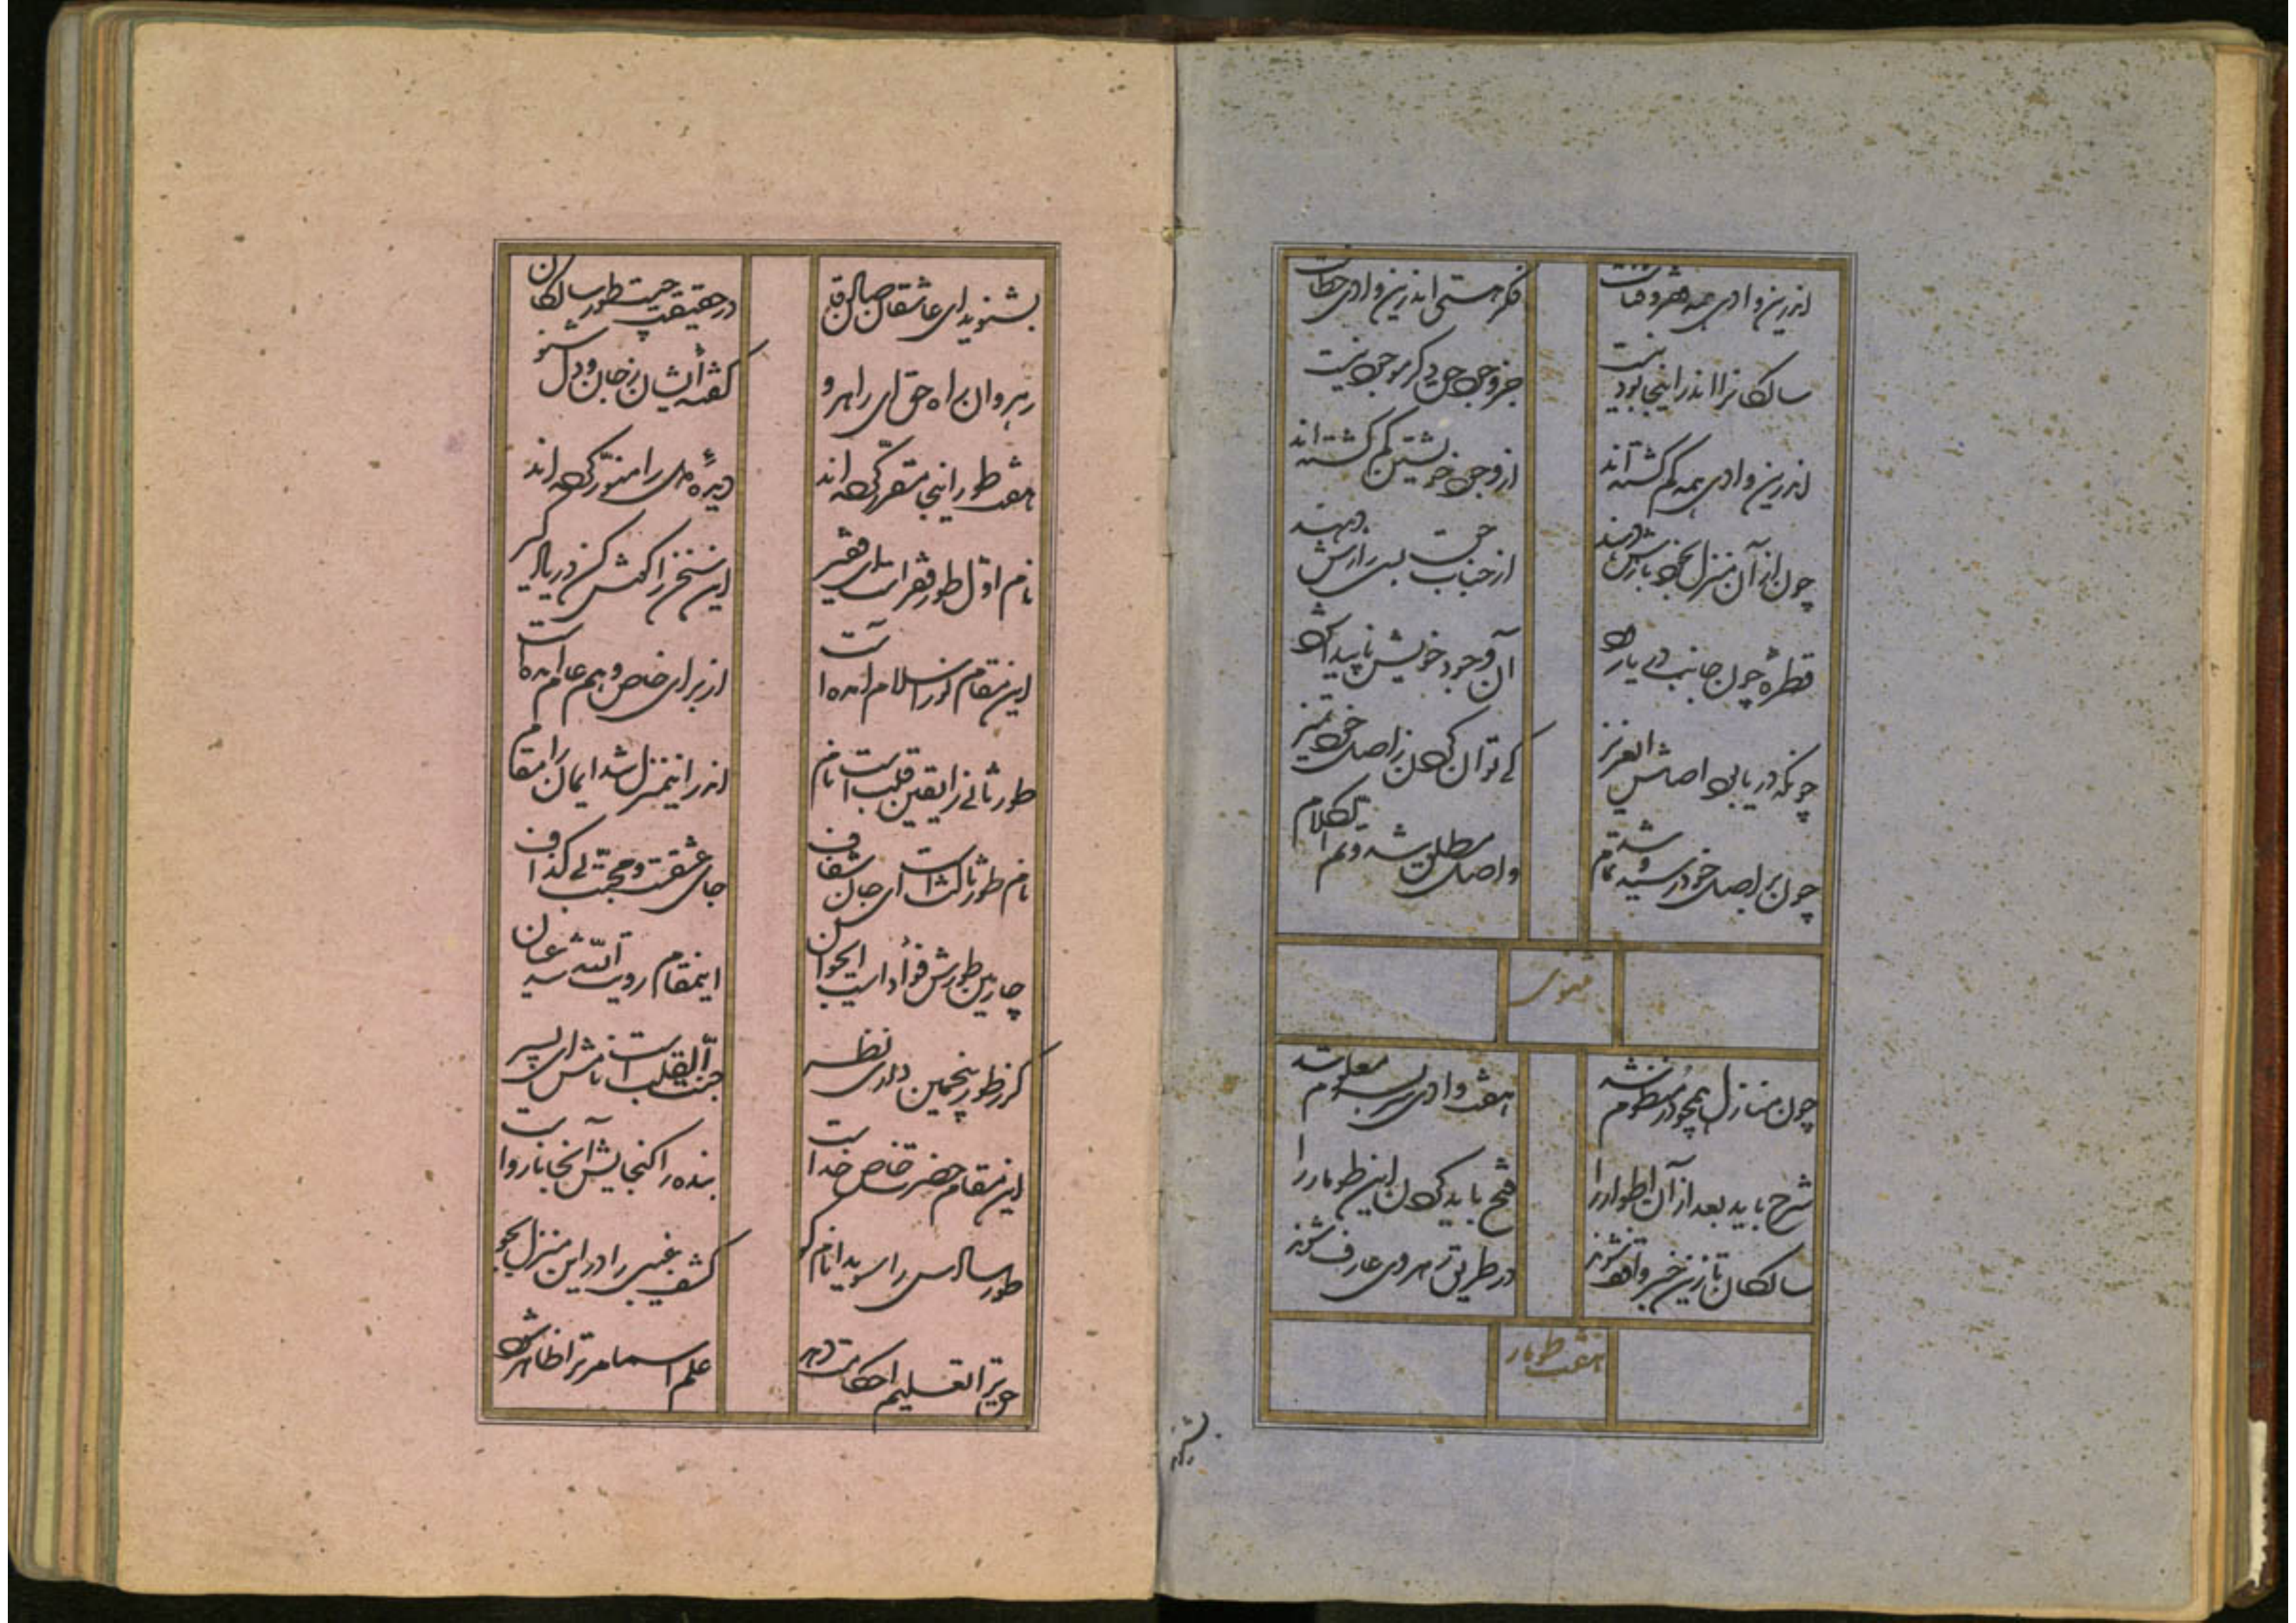 اندرین وادی همه فقر و فناست
فکر هستی اندرین وادی خطاست
سالکانرا اندر اینجا بود نیست
جز وجود حق دگر موجود نیست
اندرین وادی همه گم گشته‌اند
از وجود خویشتن گم گشته‌اند
چون از آن منزل بخود بازش دهند
از جناب حق بسی رازش دهند
قطرهٔ چون جانب دریا رود
آن وجود خویش ناپیدا شود
چونکه دریا بود اصلش ای عزیز
کی توان کردن ز اصل خود تمیز
چون بر اصل خود رسید و شد تمام
واصل مطلق شد و تم الکلام
مثنوی
چون منازل همچو در منظوم شد
هفت وادی سر بسر معلوم شد
شرح باید بعد از آن اطوار را
فتح باید کردن این طومار را
سالکان تا زین خبر واقف شوند
در طریق رهروی عارف شوند
هفت طومار
بشنوید
بشنوید ای عاشقان صادقان
در حقیقت چیست طور سالکان
رهروان براه حق ای راهرو
گفتهٔ ایشان ز جان و دل شنو
هفت طور اینجا مقرر کرده‌اند
دیدهٔ دل را منور کرده‌اند
نام اول طور فقر است ای فقیر
این سخن را گوش کن در یاد گیر
این مقام نور اسلام آمده است
از برای خاص و هم عام آمده است
طور ثانی از یقین قلب است نام
اندر اینمنزل شد ایمان را مقام
نام طور ثالث است ای جان شغاف
جای عشقست و محبت بی گذاف
چارمین طورش فؤاد است ایجوان
اینمقام رویت الله شد عیان
گر ز طور پنجمین داری نظر
حبة القلب است نامش ای پسر
این مقام حضرت خاص خداست
بنده را گنجایش آنجا نارواست
طور سادس را سویدا نام گو
کشف غیبی را در این منزل بجو
حق ترا تعلیم احکامت دهد
علم اسما مر ترا ظاهر شود